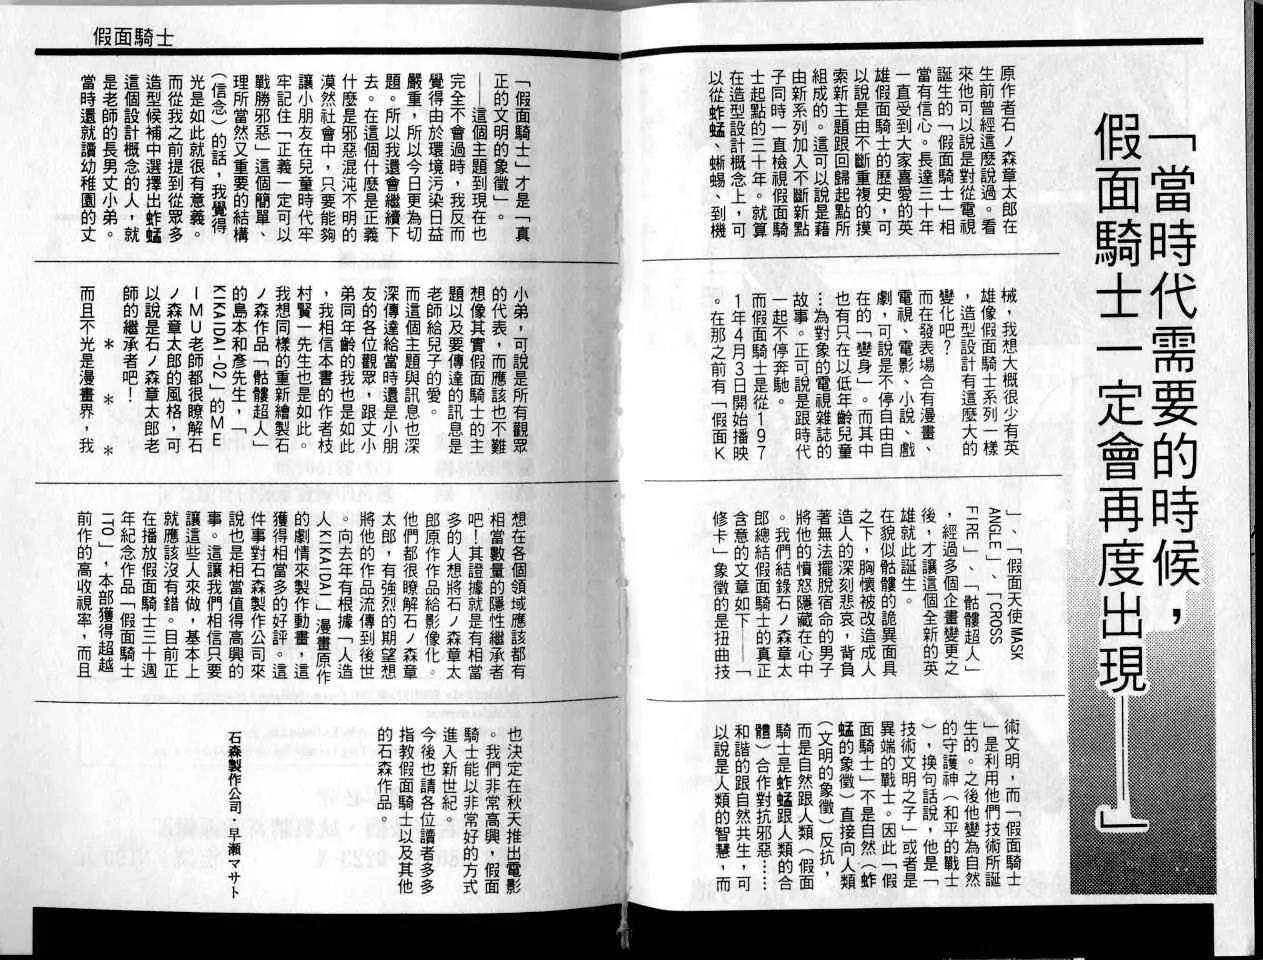 「當時代需要的時候，
假面騎士一定會再度出現——」
原作者石ノ森章太郎在
生前曾經這麼說過。看
來他可以說是對從電視
誕生的「假面騎士」相
當有信心。長達三十年
一直受到大家喜愛的英
雄假面騎士的歷史，可
以說是由不斷重複的摸
索新主題跟回歸起點所
組成的。這可以說是藉
由新系列加入不斷新點
子同時一直檢視假面騎
士起點的三十年。就算
在造型設計概念上，可
以從蚱蜢、蜥蜴、到機
械，我想大概很少有英
雄像假面騎士系列一樣
，造型設計有這麼大的
變化吧？
而在發表場合有漫畫、
電視、電影、小說、戲
劇，可說是不停自由自
在的「變身」。而其中
也有只在以低年齡兒童
…為對象的電視雜誌的
故事。正可說是跟時代
一起不停奔馳。
而假面騎士是從197
1年4月3日開始播映
。在那之前有「假面K
」、「假面天使MASK
ANGLE」、「CROSS
FIRE」、「骷髏超人」
，經過多個企畫變更之
後，才讓這個全新的英
雄就此誕生。
在貌似骷髏的詭異面具
之下，胸懷被改造成人
造人的深刻悲哀，背負
著無法擺脫宿命的男子
將他的憤怒隱藏在心中
。我們結錄石ノ森章太
郎總結假面騎士的真正
含意的文章如下——「
修卡」象徵的是扭曲技
術文明，而「假面騎士
」是利用他們技術所誕
生的。之後他變為自然
的守護神（和平的戰士
），換句話說，他是「
技術文明之子」或者是
異端的戰士。因此「假
面騎士」不是自然（蚱
蜢的象徵）直接向人類
（文明的象徵）反抗，
而是自然跟人類（假面
騎士是蚱蜢跟人類的合
體）合作對抗邪惡……
和諧的跟自然共生，可
以說是人類的智慧，而
假面騎士
「假面騎士」才是「真
正的文明的象徵」。
——這個主題到現在也
完全不會過時，我反而
覺得由於環境污染日益
嚴重，所以今日更為切
題。所以我還會繼續下
去。在這個什麼是正義
什麼是邪惡混沌不明的
漠然社會中，只要能夠
讓小朋友在兒童時代牢
牢記住「正義一定可以
戰勝邪惡」這個簡單、
理所當然又重要的結構
（信念）的話，我覺得
光是如此就很有意義。
而從我之前提到從眾多
造型候補中選擇出蚱蜢
這個設計概念的人，就
是老師的長男丈小弟。
當時還就讀幼稚園的丈
小弟，可說是所有觀眾
的代表，而應該也不難
想像其實假面騎士的主
題以及要傳達的訊息是
老師給兒子的愛。
而這個主題與訊息也深
深傳達給當時還是小朋
友的各位觀眾，跟丈小
弟同年齡的我也是如此
，我相信本書的作者枝
村賢一先生也是如此。
我想同樣的重新繪製石
ノ森作品「骷髏超人」
的島本和彥先生，「
KIKAIDAI-02」的ME
IMU老師都很瞭解石
ノ森章太郎的風格，可
以說是石ノ森章太郎老
師的繼承者吧！
＊　＊　＊
而且不光是漫畫界，我
想在各個領域應該都有
相當數量的隱性繼承者
吧！其證據就是有相當
多的人想將石ノ森章太
郎原作作品給影像化。
他們都很瞭解石ノ森章
太郎，有強烈的期望想
將他的作品流傳到後世
。向去年有根據「人造
人KIKAIDAI」漫畫原作
的劇情來製作動畫，這
獲得相當多的好評。這
件事對石森製作公司來
說也是相當值得高興的
事。這讓我們相信只要
讓這些人來做，基本上
就應該沒有錯。目前正
在播放假面騎士三十週
年紀念作品「假面騎士
ITO」，本部獲得超越
前作的高收視率，而且
也決定在秋天推出電影
。我們非常高興，假面
騎士能以非常好的方式
進入新世紀。
今後也請各位讀者多多
指教假面騎士以及其他
的石森作品。
石森製作公司・早瀨マサト